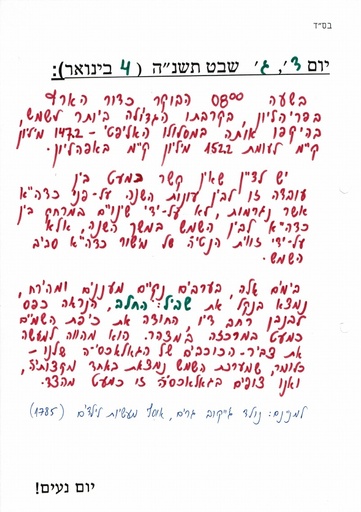 בס"ד
יום ד', ג' שבט תשנ"ה (4 בינואר):
בשעה 08⁰⁰ הבוקר כדור הארץ
בפריהליון, בקרבתו הגדולה ביותר לשמש,
בהיקפו אותה במסלולו האליפטי - 147.2 מיליון
ק"מ לעומת 152.2 מיליון ק"מ באפהליון.
יש לציין שאין קשר כמעט בין
עובדה זו לבין עונות השנה על-פני כדה"א
אשר נגרמות, לא על-ידי שינויים במרחק בין
כדה"א לבין השמש במשך השנה, אלא
על-ידי זווית הנטיה של משור כדה"א סביב
השמש.
בימים אלה, בערבים נקיים מעננים ומירח,
נמצא בנקל את שביל החלב, הנראה כפס
לבנבן רחב דיו, החוצה את כיפת השמים
כמעט במרכזה במצפר. הוא מהווה למעשה
את צביר-הכוכבים של הגאלאכסיה שלנו -
כלומר, שמערכת השמש נמצאת באחד מקצותיה,
ואנו צופים בגאלאכסיה זו כמעט מהצד.
נולד יעקוב גרים, אוסף מעשיות לילדים (1785)
יום נעים!